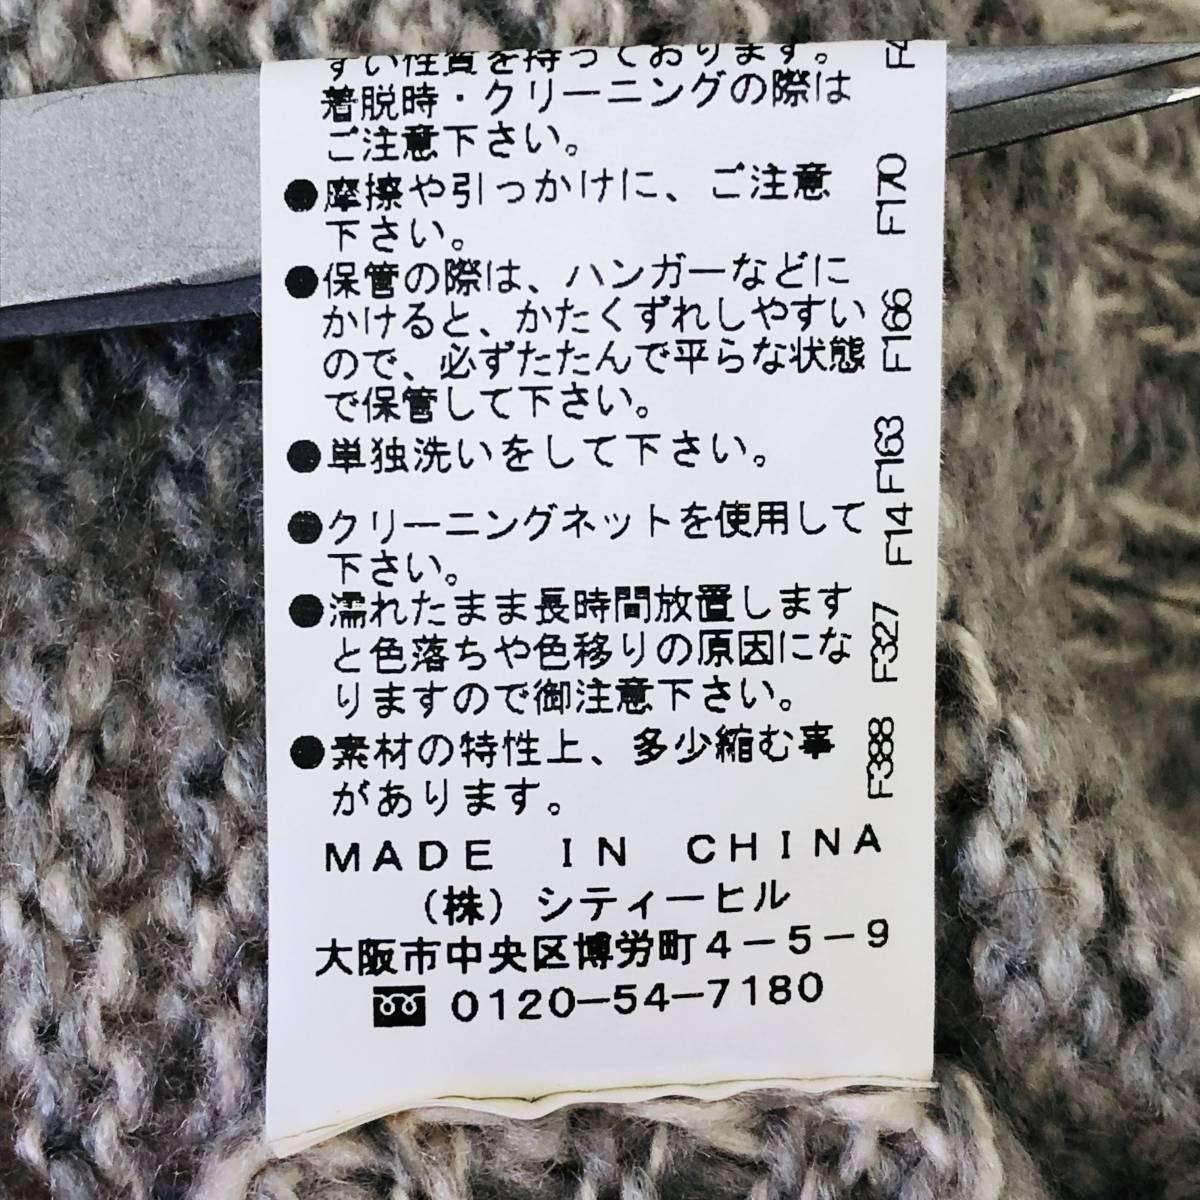 すい性質を持っております。
着脱時・クリーニングの際は
ご注意下さい。
●摩擦や引っかけに、ご注意
下さい。
●保管の際は、ハンガーなどに
かけると、かたくずれしやすい
ので、必ずたたんで平らな状態
で保管して下さい。
●単独洗いをして下さい。
●クリーニングネットを使用して
下さい。
●濡れたまま長時間放置します
と色落ちや色移りの原因にな
りますので御注意下さい。
●素材の特性上、多少縮む事
があります。
MADE IN CHINA
（株）シティーヒル
大阪市中央区博労町4-5-9
0120-54-7180
F170
F166
F163
F14
F327
F388